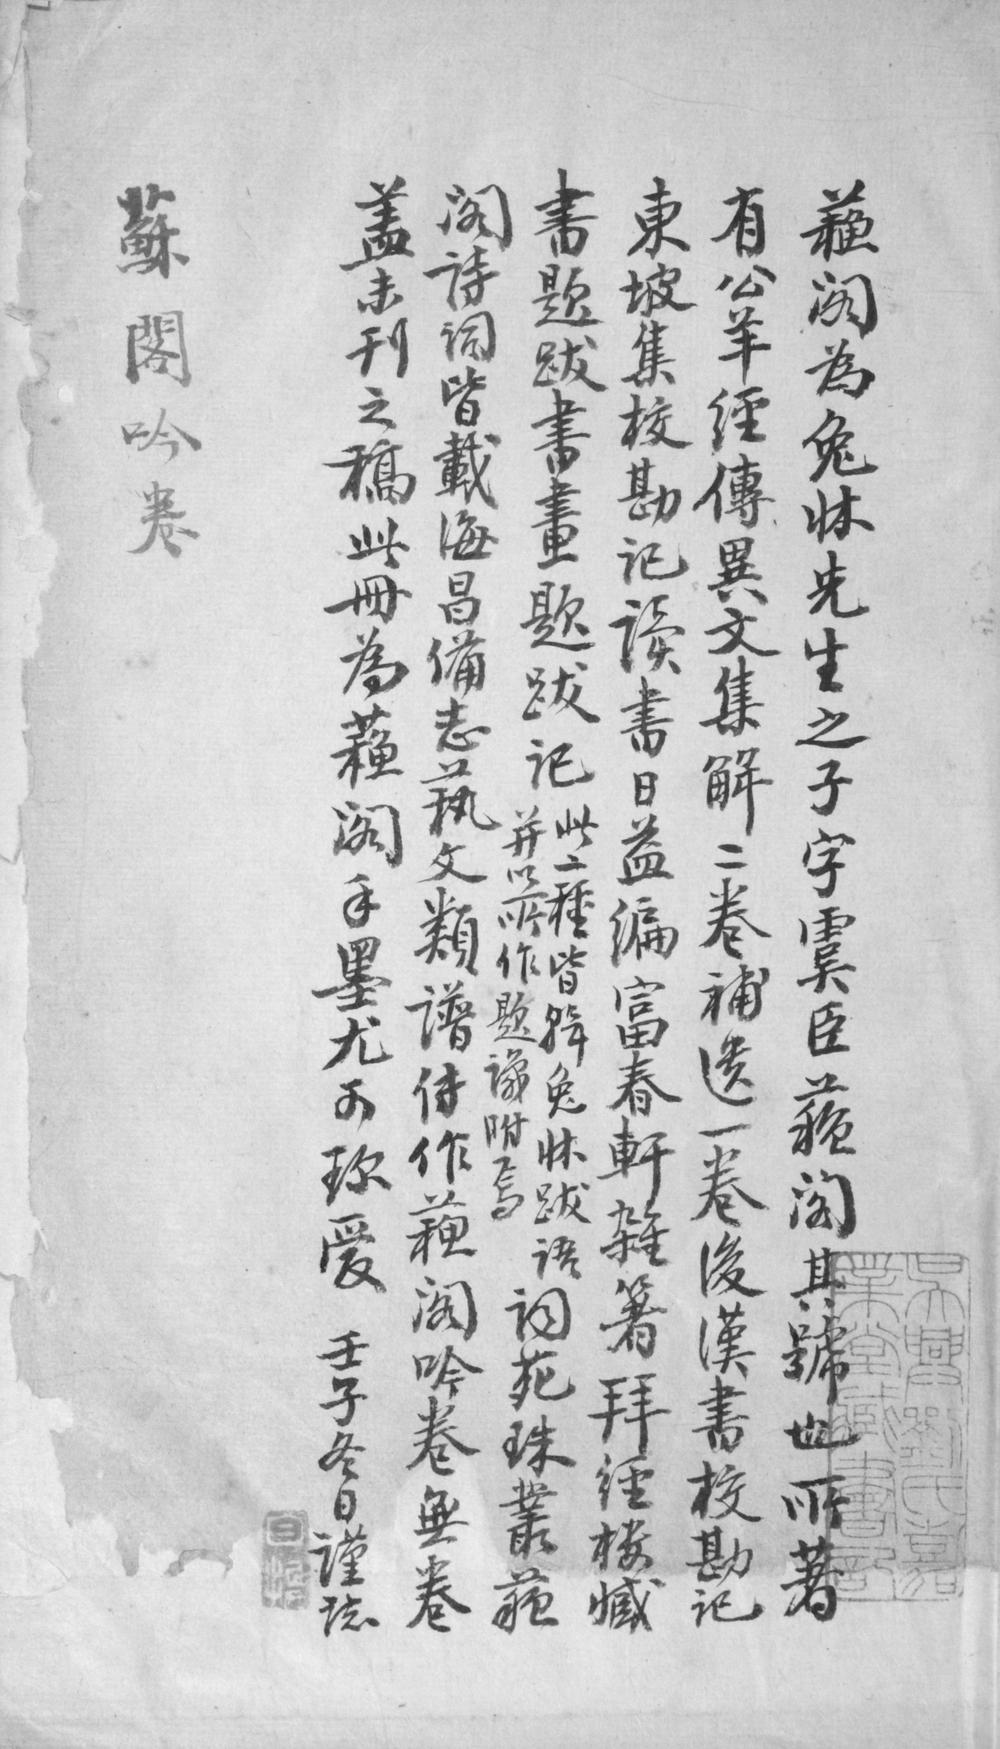 蘓閣為兔牀先生之子字虞臣蘓閣其號也所著
有公羊經傳異文集解二卷補遺一卷後漢書校勘記
東坡集校勘記讀書日益編富春軒雜箸拜經樓藏
書題跋書畫題跋記
此二種皆輯兔牀跋語
并以所作題識附焉
詞苑珠叢蘓
閣詩詞皆載海昌備志萟文類譜傳作蘓閣吟卷無卷
盖未刊之稿此冊為蘓閣手墨尤可珎愛 壬子冬日謹志
蘇閣吟卷
吳興劉氏嘉
業堂藏書記